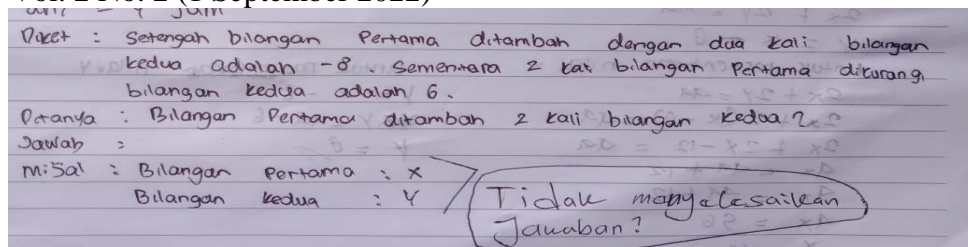 Vol. 2 No. 2 (1 September 2022)
Diket : Setengah bilangan Pertama ditambah dengan dua kali bilangan
kedua adalah -8. Sementara 2 kali bilangan Pertama dikurangi
bilangan kedua adalah 6.
Ditanya : Bilangan Pertama ditambah 2 kali bilangan kedua?
Jawab :
Misal : Bilangan Pertama : X
Bilangan kedua : Y
Tidak menyelesaikan
Jawaban?